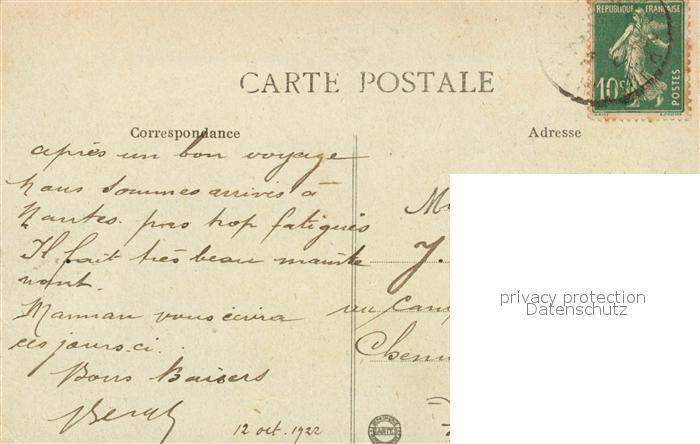 RÉPUBLIQUE FRANÇAISE
10c
POSTES
CARTE POSTALE
Correspondance
Adresse
après un bon voyage
nous sommes arrivés à
Nantes. pas trop fatigués
Il fait très beau mainte
nant.
Maman vous écrira
ces jours.ci.
Bons Baisers
12 oct. 1922
J.
privacy protection
Datenschutz